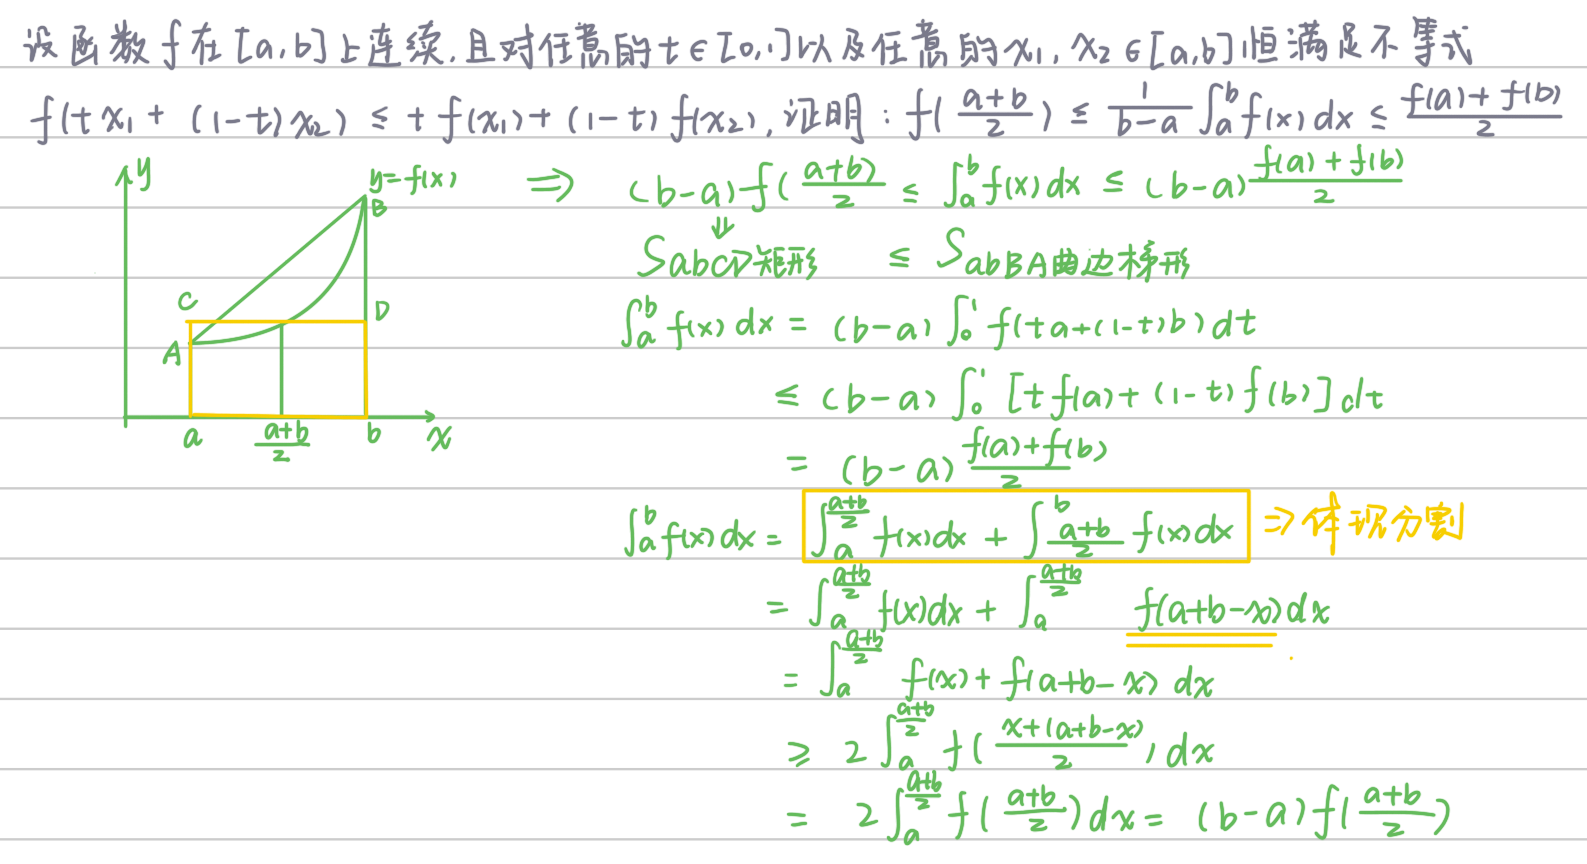 设函数 f 在 [a,b] 上连续,且对任意的 t∈[0,1] 以及任意的 x₁, x₂∈[a,b] 恒满足不等式
f(tx₁+(1-t)x₂) ≤ tf(x₁)+(1-t)f(x₂), 证明: f((a+b)/2) ≤ 1/(b-a) ∫_a^b f(x)dx ≤ (f(a)+f(b))/2
y
y=f(x)
B
C
D
A
a
(a+b)/2
b
x
⇒ (b-a)f((a+b)/2) ≤ ∫_a^b f(x)dx ≤ (b-a)(f(a)+f(b))/2
⇓
S abCD矩形 ≤ S abBA曲边梯形
∫_a^b f(x)dx = (b-a)∫_0^1 f(ta+(1-t)b)dt
≤ (b-a)∫_0^1 [tf(a)+(1-t)f(b)]dt
= (b-a)(f(a)+f(b))/2
∫_a^b f(x)dx = ∫_a^{(a+b)/2} f(x)dx + ∫_{(a+b)/2}^b f(x)dx ⇒体现分割
= ∫_a^{(a+b)/2} f(x)dx + ∫_a^{(a+b)/2} f(a+b-x)dx
= ∫_a^{(a+b)/2} f(x)+f(a+b-x)dx
≥ 2∫_a^{(a+b)/2} f((x+(a+b-x))/2)dx
= 2∫_a^{(a+b)/2} f((a+b)/2)dx = (b-a)f((a+b)/2)